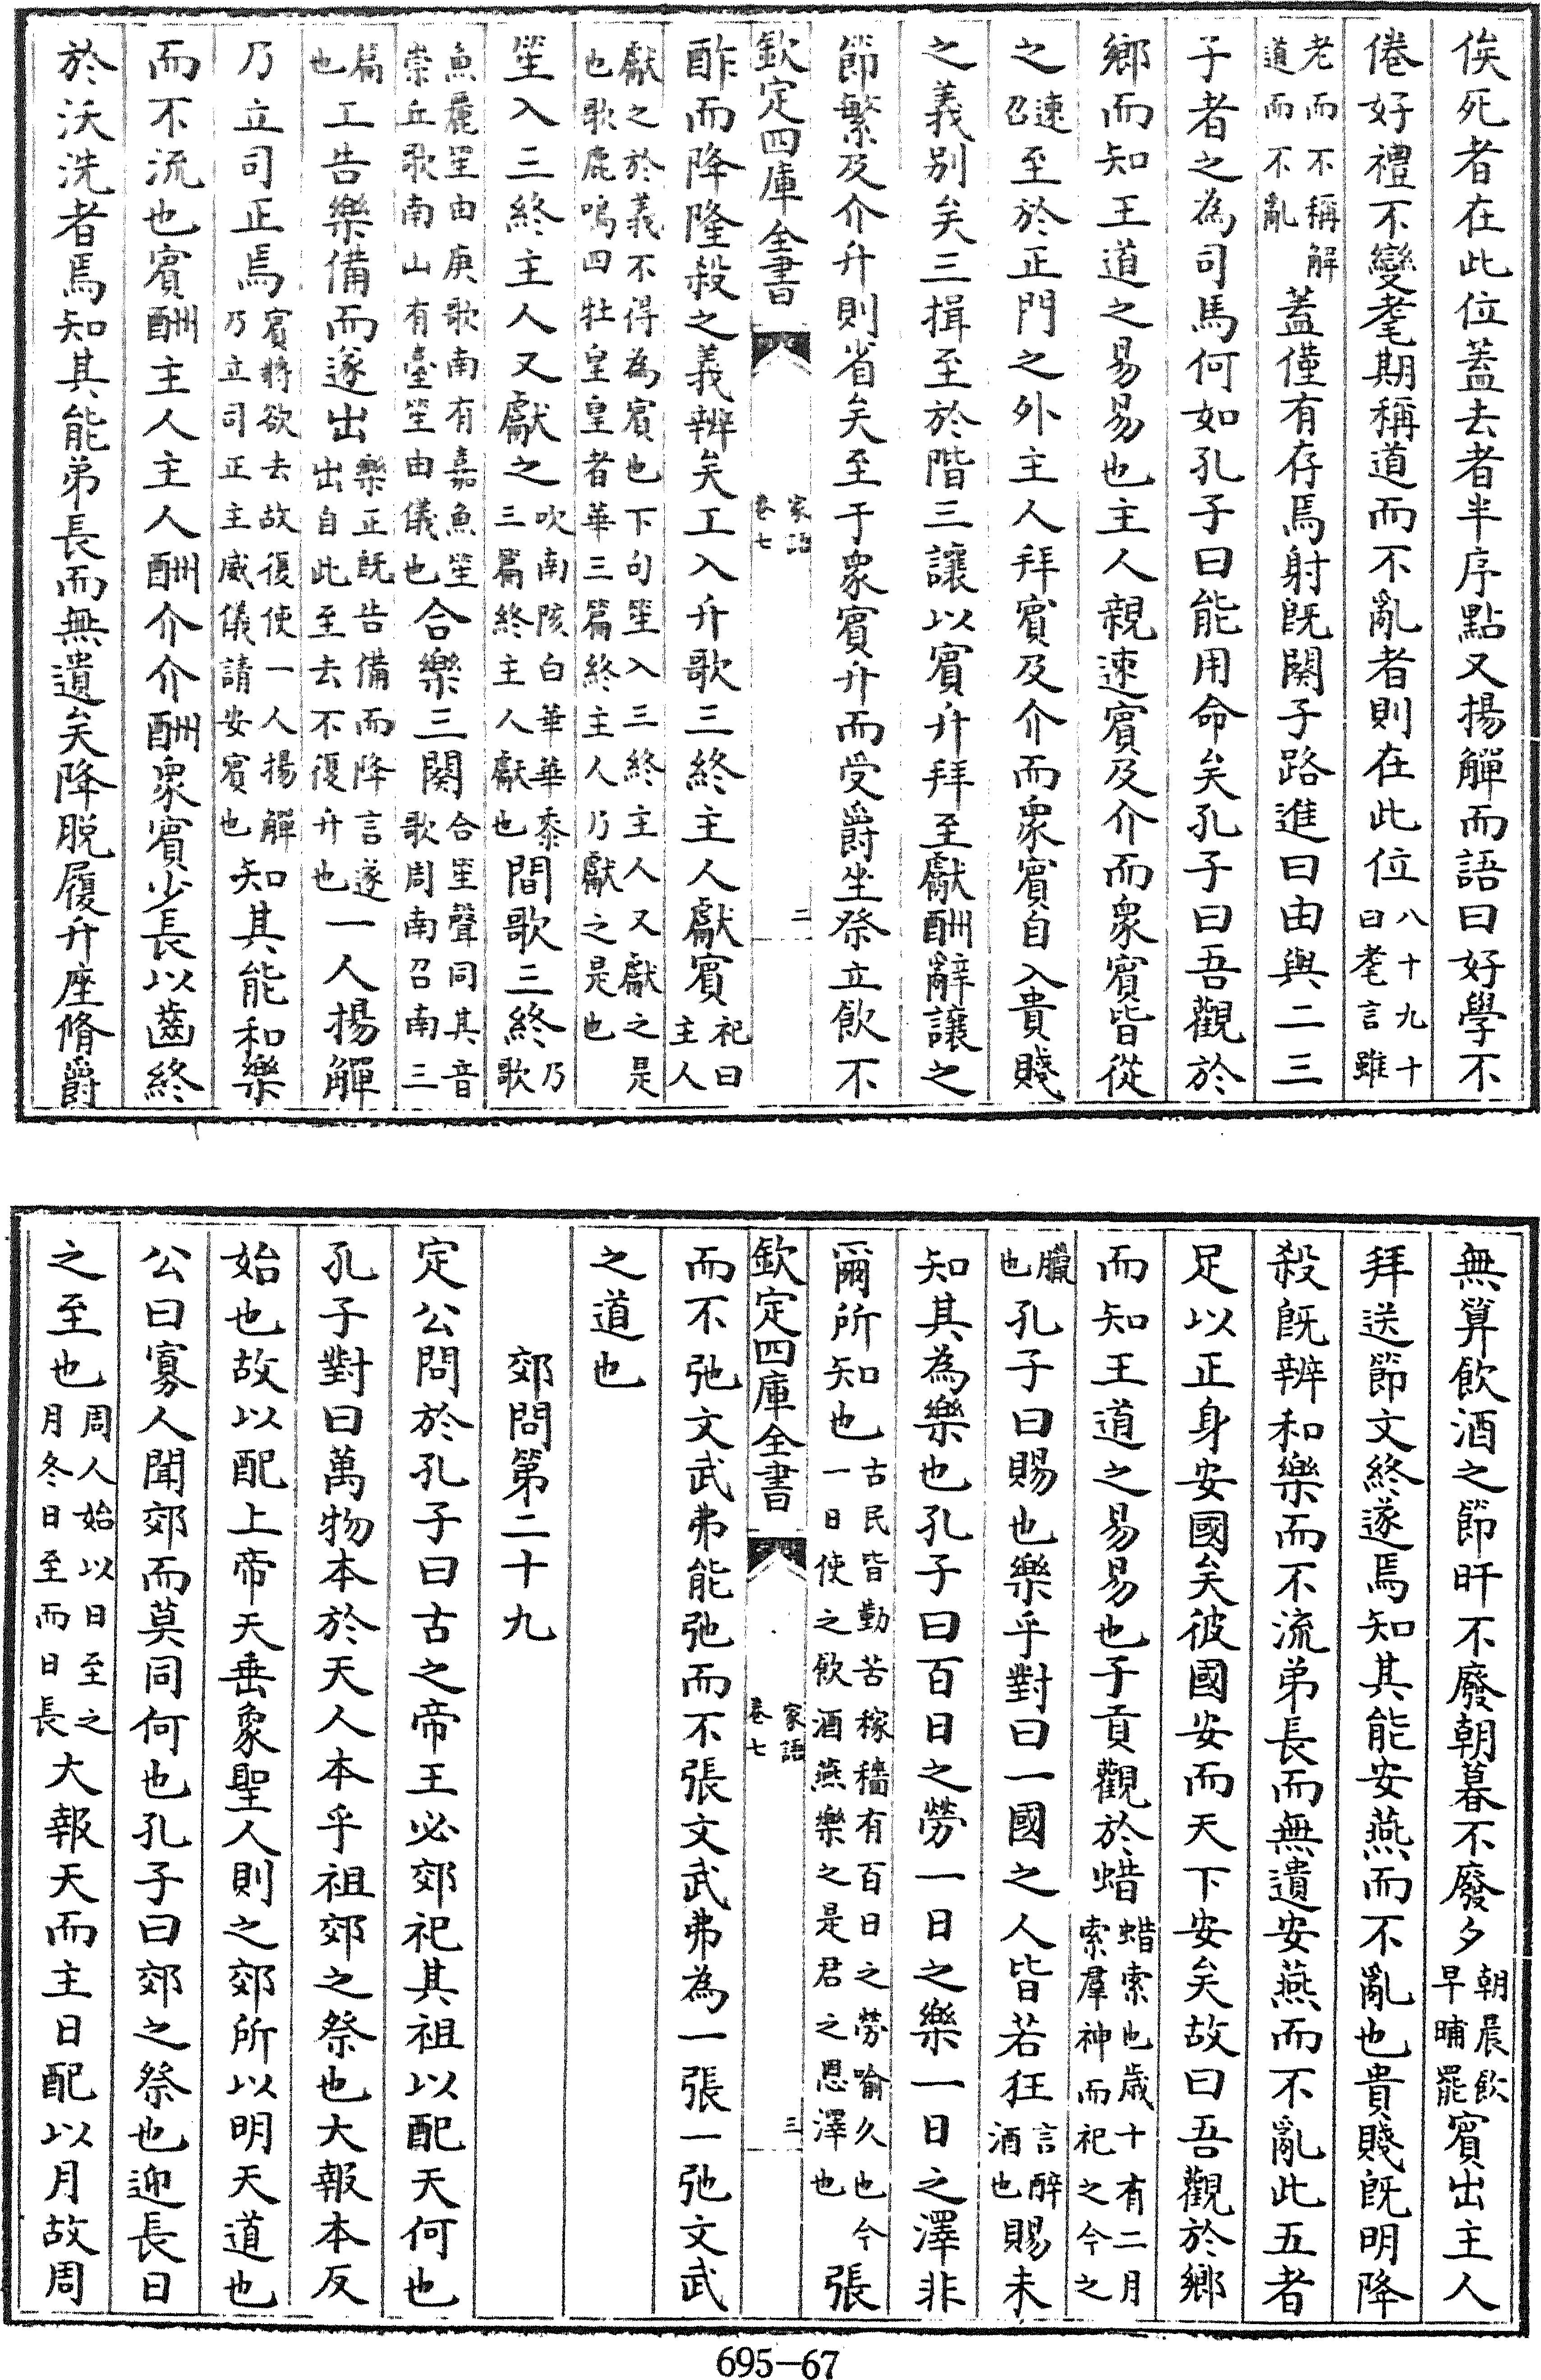 俟死者在此位蓋去者半序點又揚觶而語曰好學不
倦好禮不變耄期稱道而不亂者則在此位八十九十曰耄言雖
老而不稱解道而不亂蓋僅有存焉射既闋子路進曰由與二三
子者之為司馬何如孔子曰能用命矣孔子曰吾觀於
鄉而知王道之易易也主人親速賓及介而衆賓皆從
之速召至於正門之外主人拜賓及介而衆賓自入貴賤
之義别矣三揖至於階三讓以賓升拜至獻酬辭讓之
節繁及介升則省矣至于衆賓升而受爵坐祭立飲不
欽定四庫全書 家語卷七 二
酢而降隆殺之義辨矣工入升歌三終主人獻賓記曰主人
獻之於義不得為賓也下句笙入三終主人又獻之是也歌鹿鳴四牡皇皇者華三篇終主人乃獻之是也
笙入三終主人又獻之吹南陔白華華黍三篇終主人獻也間歌三終乃歌
魚麗笙由庚歌南有嘉魚笙崇丘歌南山有臺笙由儀也合樂三闋合笙聲同其音歌周南召南三
篇也工告樂備而遂出樂正既告備而降言遂出自此至去不復升也一人揚觶
乃立司正焉賓將欲去故復使一人揚觶乃立司正主威儀請安賓也知其能和樂
而不流也賓酬主人主人酬介介酬衆賓少長以齒終
於沃洗者焉知其能弟長而無遺矣降脱履升座脩爵
無算飲酒之節旰不廢朝暮不廢夕朝晨飲早晡罷賓出主人
拜送節文終遂焉知其能安燕而不亂也貴賤既明降
殺既辨和樂而不流弟長而無遺安燕而不亂此五者
足以正身安國矣彼國安而天下安矣故曰吾觀於鄉
而知王道之易易也子貢觀於蜡蜡索也歲十有二月索羣神而祀之今之
臘也孔子曰賜也樂乎對曰一國之人皆若狂言醉酒也賜未
知其為樂也孔子曰百日之勞一日之樂一日之澤非
爾所知也古民皆勤苦稼穡有百日之勞喻久也今一日使之飲酒燕樂之是君之恩澤也張
欽定四庫全書 家語卷七 三
而不弛文武弗能弛而不張文武弗為一張一弛文武
之道也
郊問第二十九
定公問於孔子曰古之帝王必郊祀其祖以配天何也
孔子對曰萬物本於天人本乎祖郊之祭也大報本反
始也故以配上帝天垂象聖人則之郊所以明天道也
公曰寡人聞郊而莫同何也孔子曰郊之祭也迎長日
之至也周人始以日至之月冬日至而日長大報天而主日配以月故周
695-67